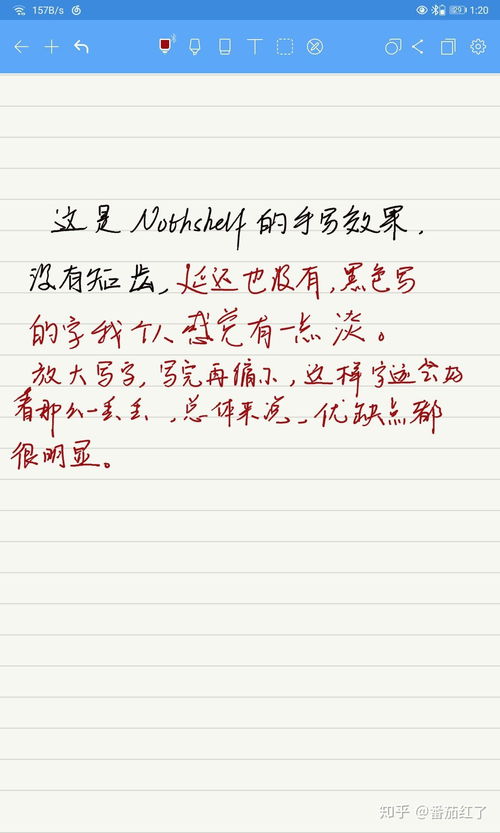 157B/s
1:20
这是Nothshelf的手写效果.
没有知齿,延迟也没有,黑色写
的字我个人感觉有一点淡。
放大写字,写完再缩小,这样字迹会好
看那么一丢丢,总体来说,优缺点都
很明显。
知乎 @番茄红了